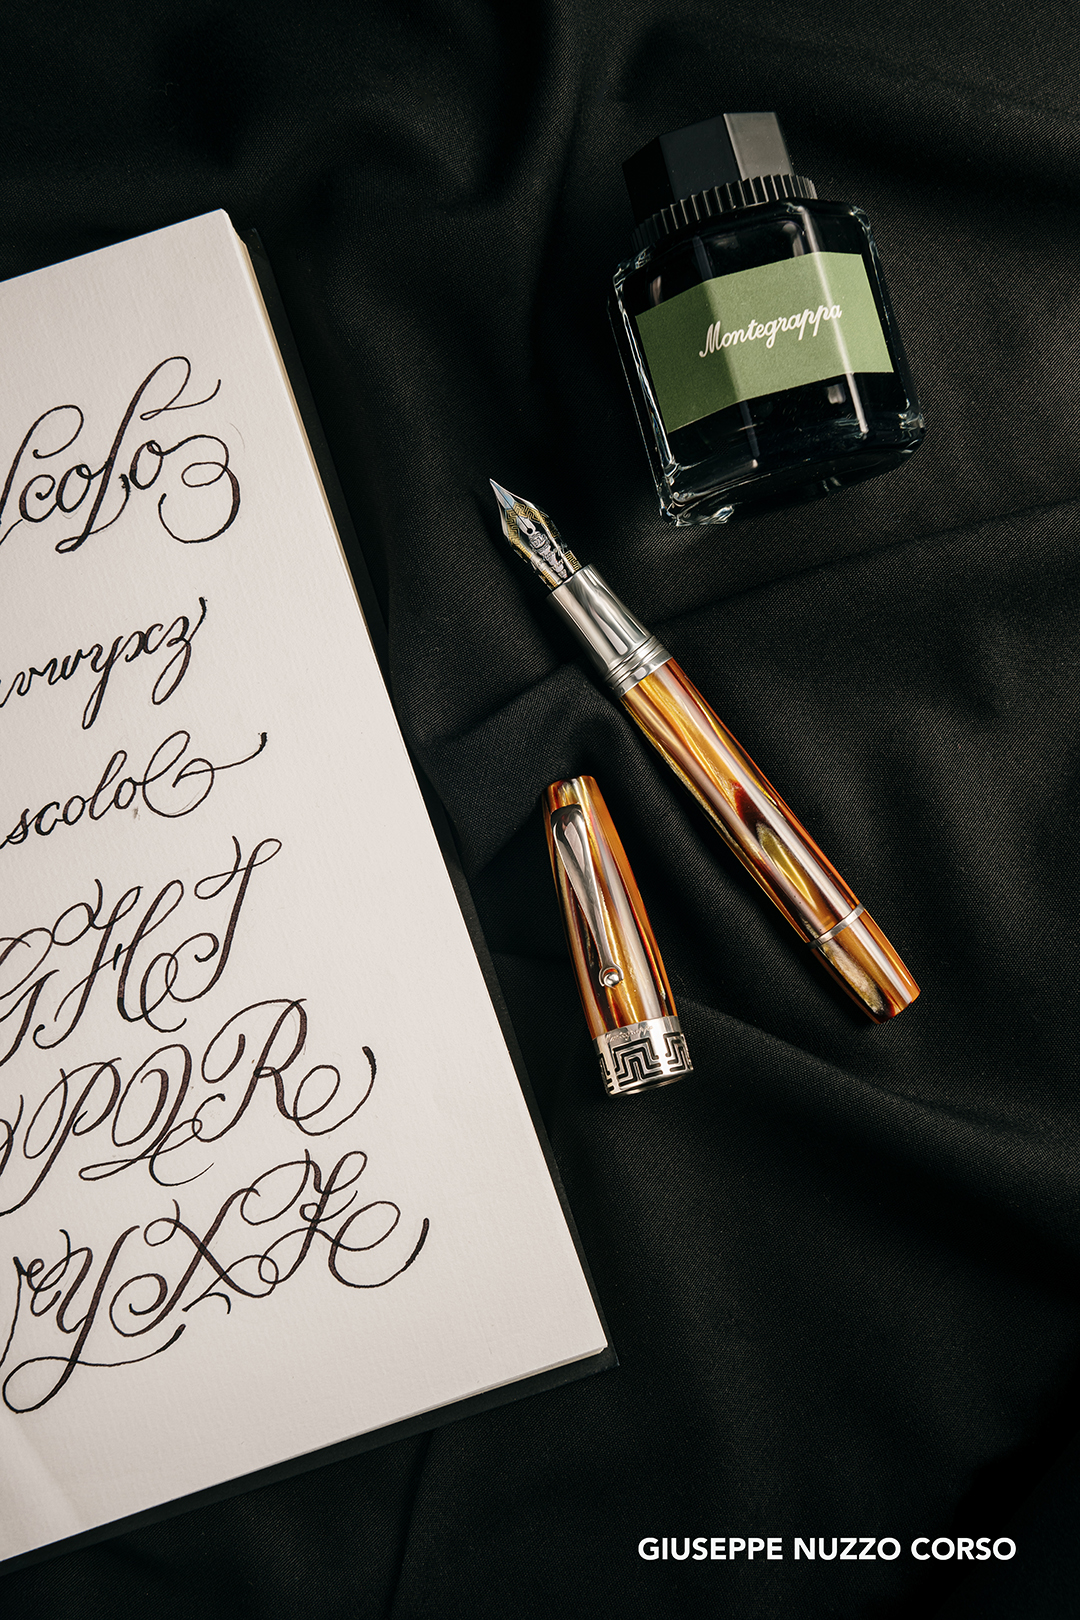 Montegrappa
scolo
vwyxz
scolo
GHI
PQR
YXZ
GIUSEPPE NUZZO CORSO